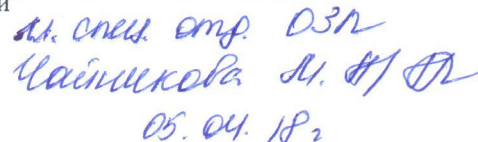 и
мл. спец. отд. ОЗП
Чайникова М.
05.04.18г